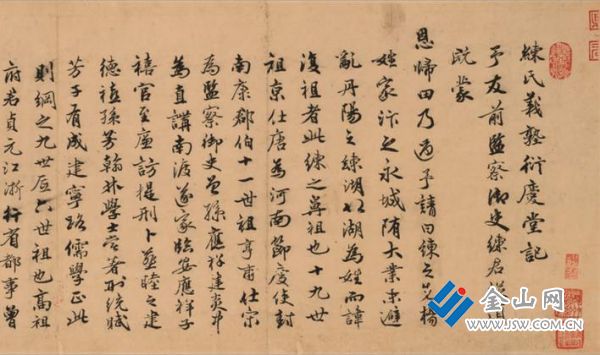 練氏義塾衍慶堂記
予友前監察御史練君
既蒙
恩歸田乃過予請曰練之先楊
姓家汴之永城隋大業末避
亂丹陽之練湖以湖為姓而諱
復祖者此練之鼻祖也十九世
祖京仕唐為河南節度使封
南康郡伯十一世祖亨甫仕宋
為監察御史曾孫應祥建炎中
為直講南渡遂家臨安應祥子
禧官至廉訪提刑卜葬睦之建
德禧孫芳翰林學士嘗著刑統賦
芳子有成建寧路儒學正此
則綱之九世六世祖也高祖
府君貞元江浙行省都事曾
金山网
www.JSW.com.cn